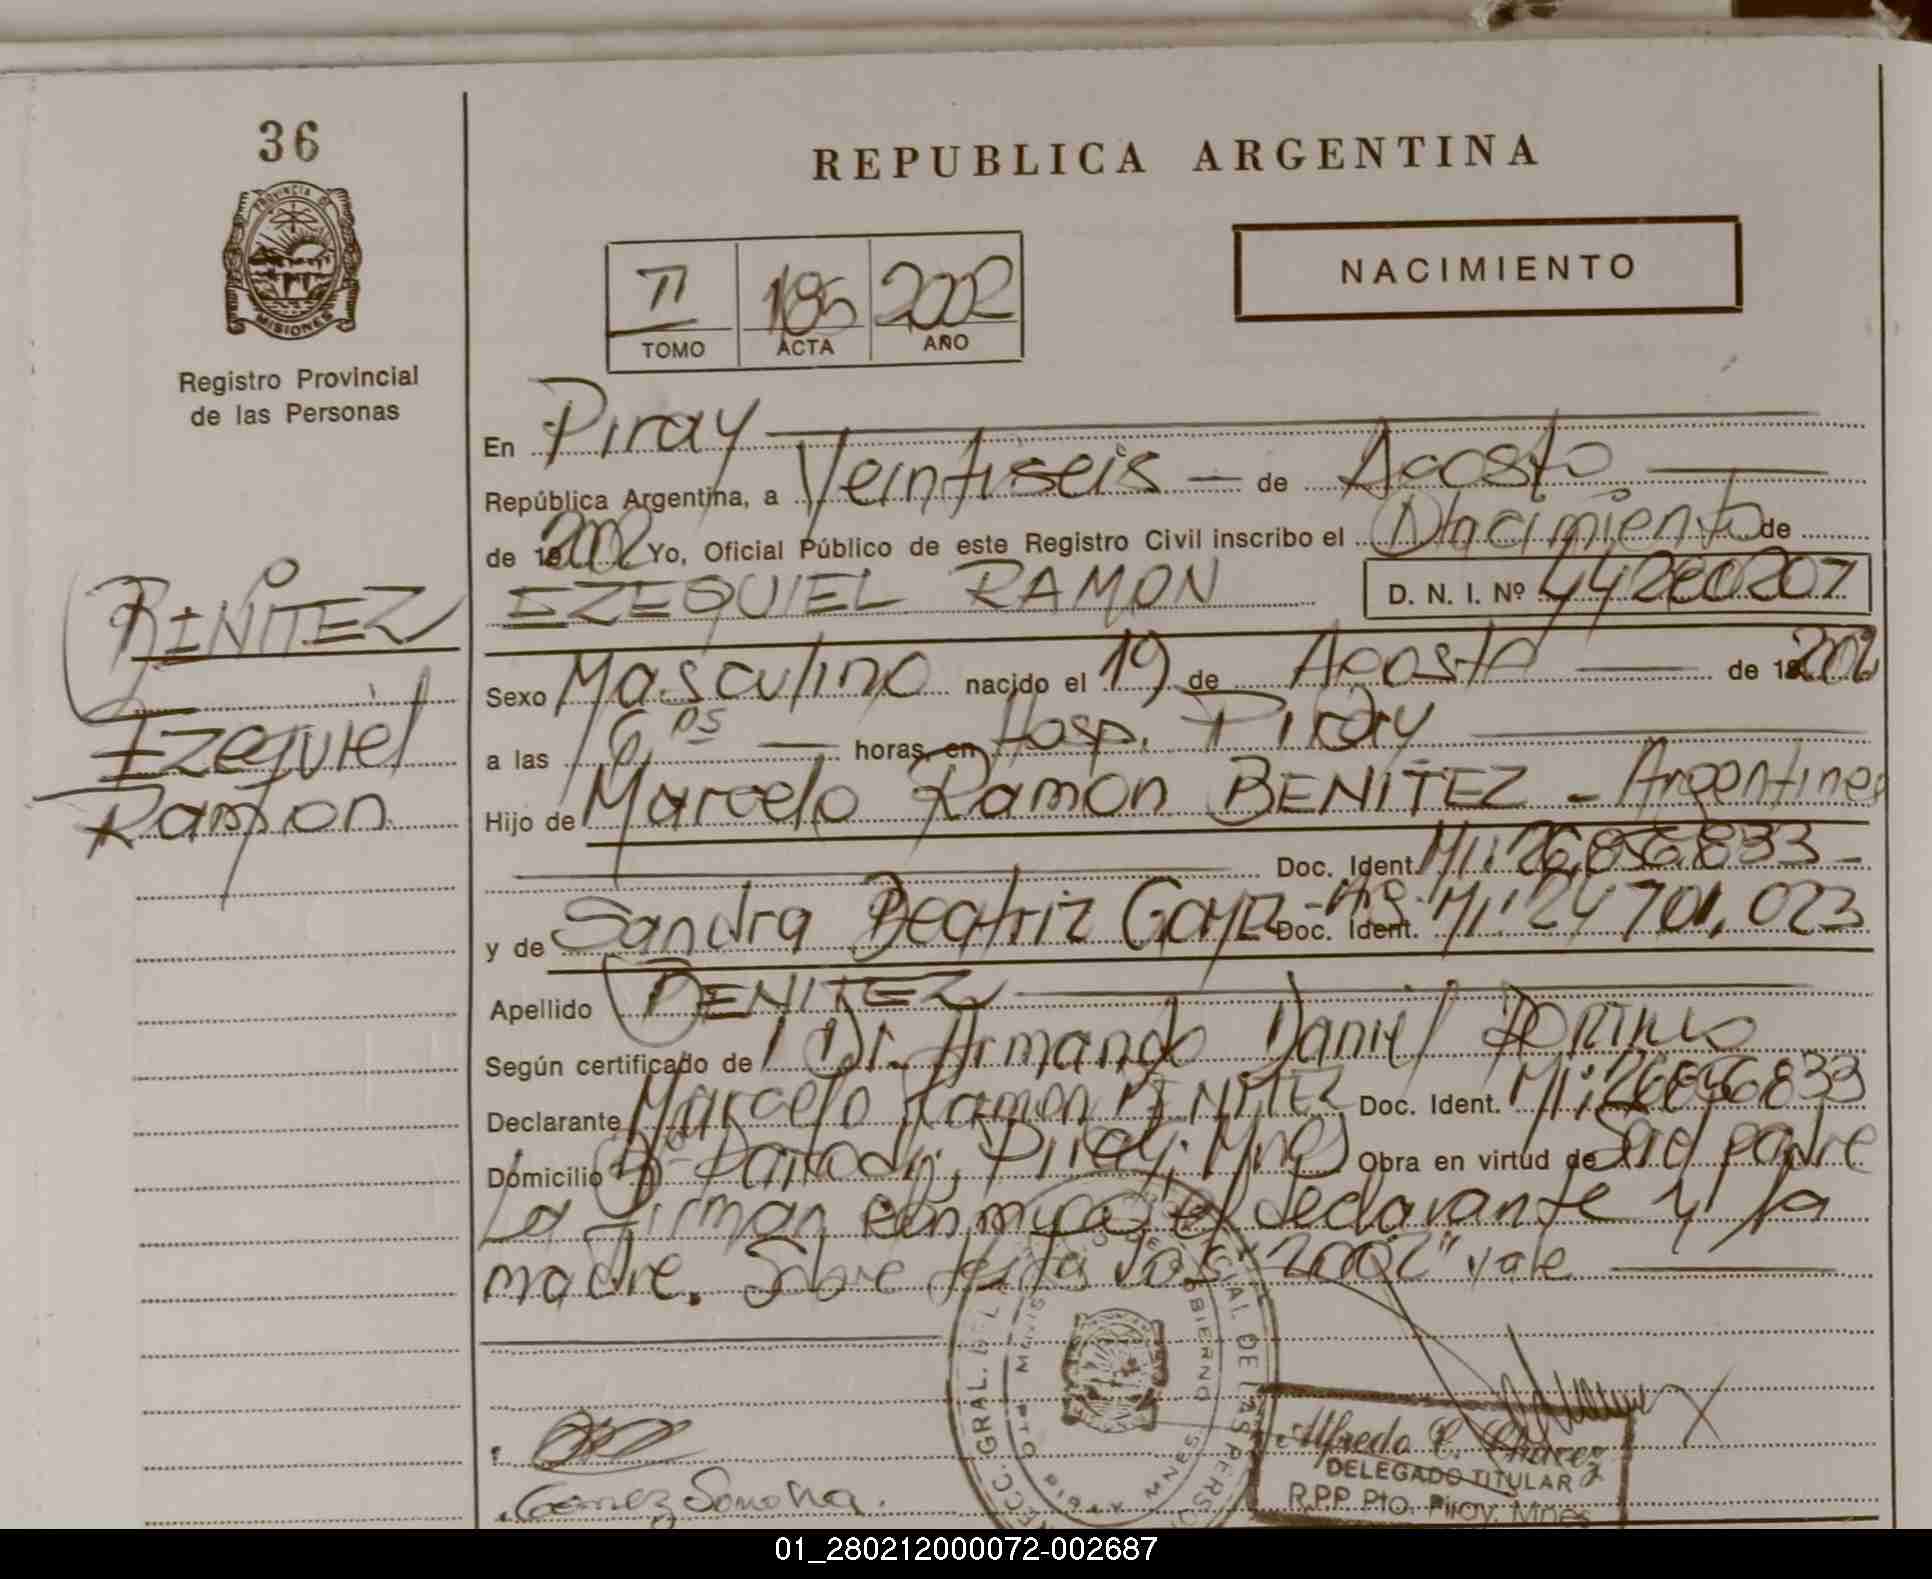 36
REPUBLICA ARGENTINA
PROVINCIA DE
MISIONES
Registro Provincial
de las Personas
NACIMIENTO
II 186 2002
TOMO ACTA AÑO
En Piray
República Argentina, a Veintiseis - de Agosto
de 2002 Yo, Oficial Público de este Registro Civil inscribo el Nacimiento de
EZEQUIEL RAMON D. N. I. Nº 44260207
BENITEZ
Ezequiel
Ramon
Sexo Masculino nacido el 19 de Agosto de 2002
a las horas, en Hosp. Piray
Hijo de Marcelo Ramon BENITEZ - Argentino
Doc. Ident. MI: 26.856.833 -
y de Sandra Beatriz - Arg. Doc. Ident. MI: 24701.023
Apellido BENITEZ
Según certificado de Dr. Armando Daniel
Declarante Marcelo Ramon BENITEZ Doc. Ident. MI: 26856833
Domicilio Bº Piray, Mnes Obra en virtud de Ser padre
La firman conmigo el declarante y la
madre. Sobre los "2002" vale
Gomez
Alfredo C. Chavez
DELEGADO TITULAR
R.P.P. Pto. Piray. Mnes
01_280212000072-002687